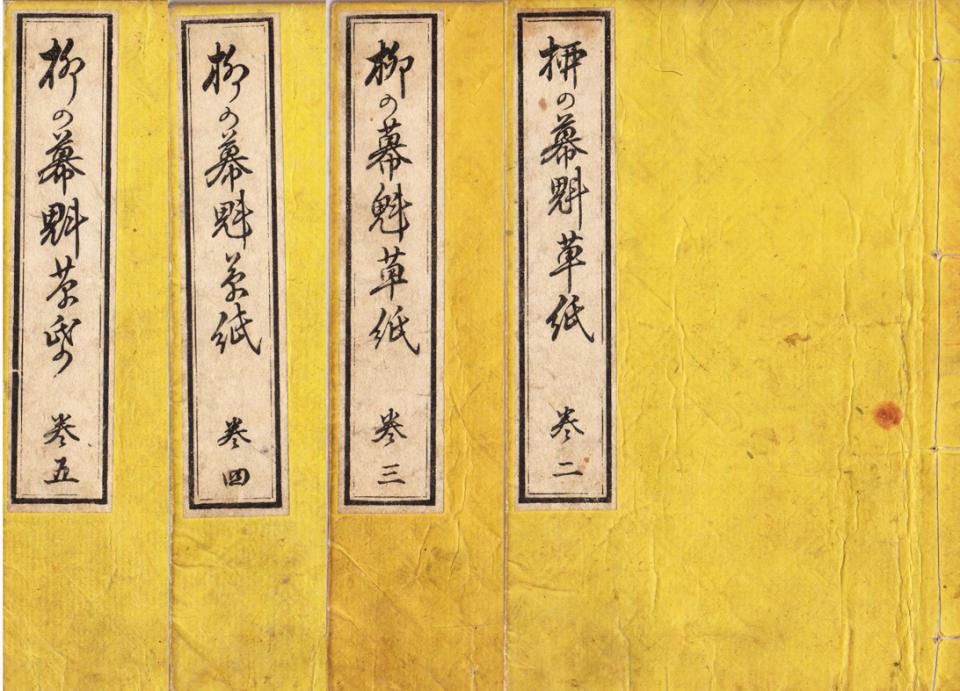 柳の幕魁草紙 巻二
柳の幕魁草紙 巻三
柳の幕魁草紙 巻四
柳の幕魁草紙 巻五